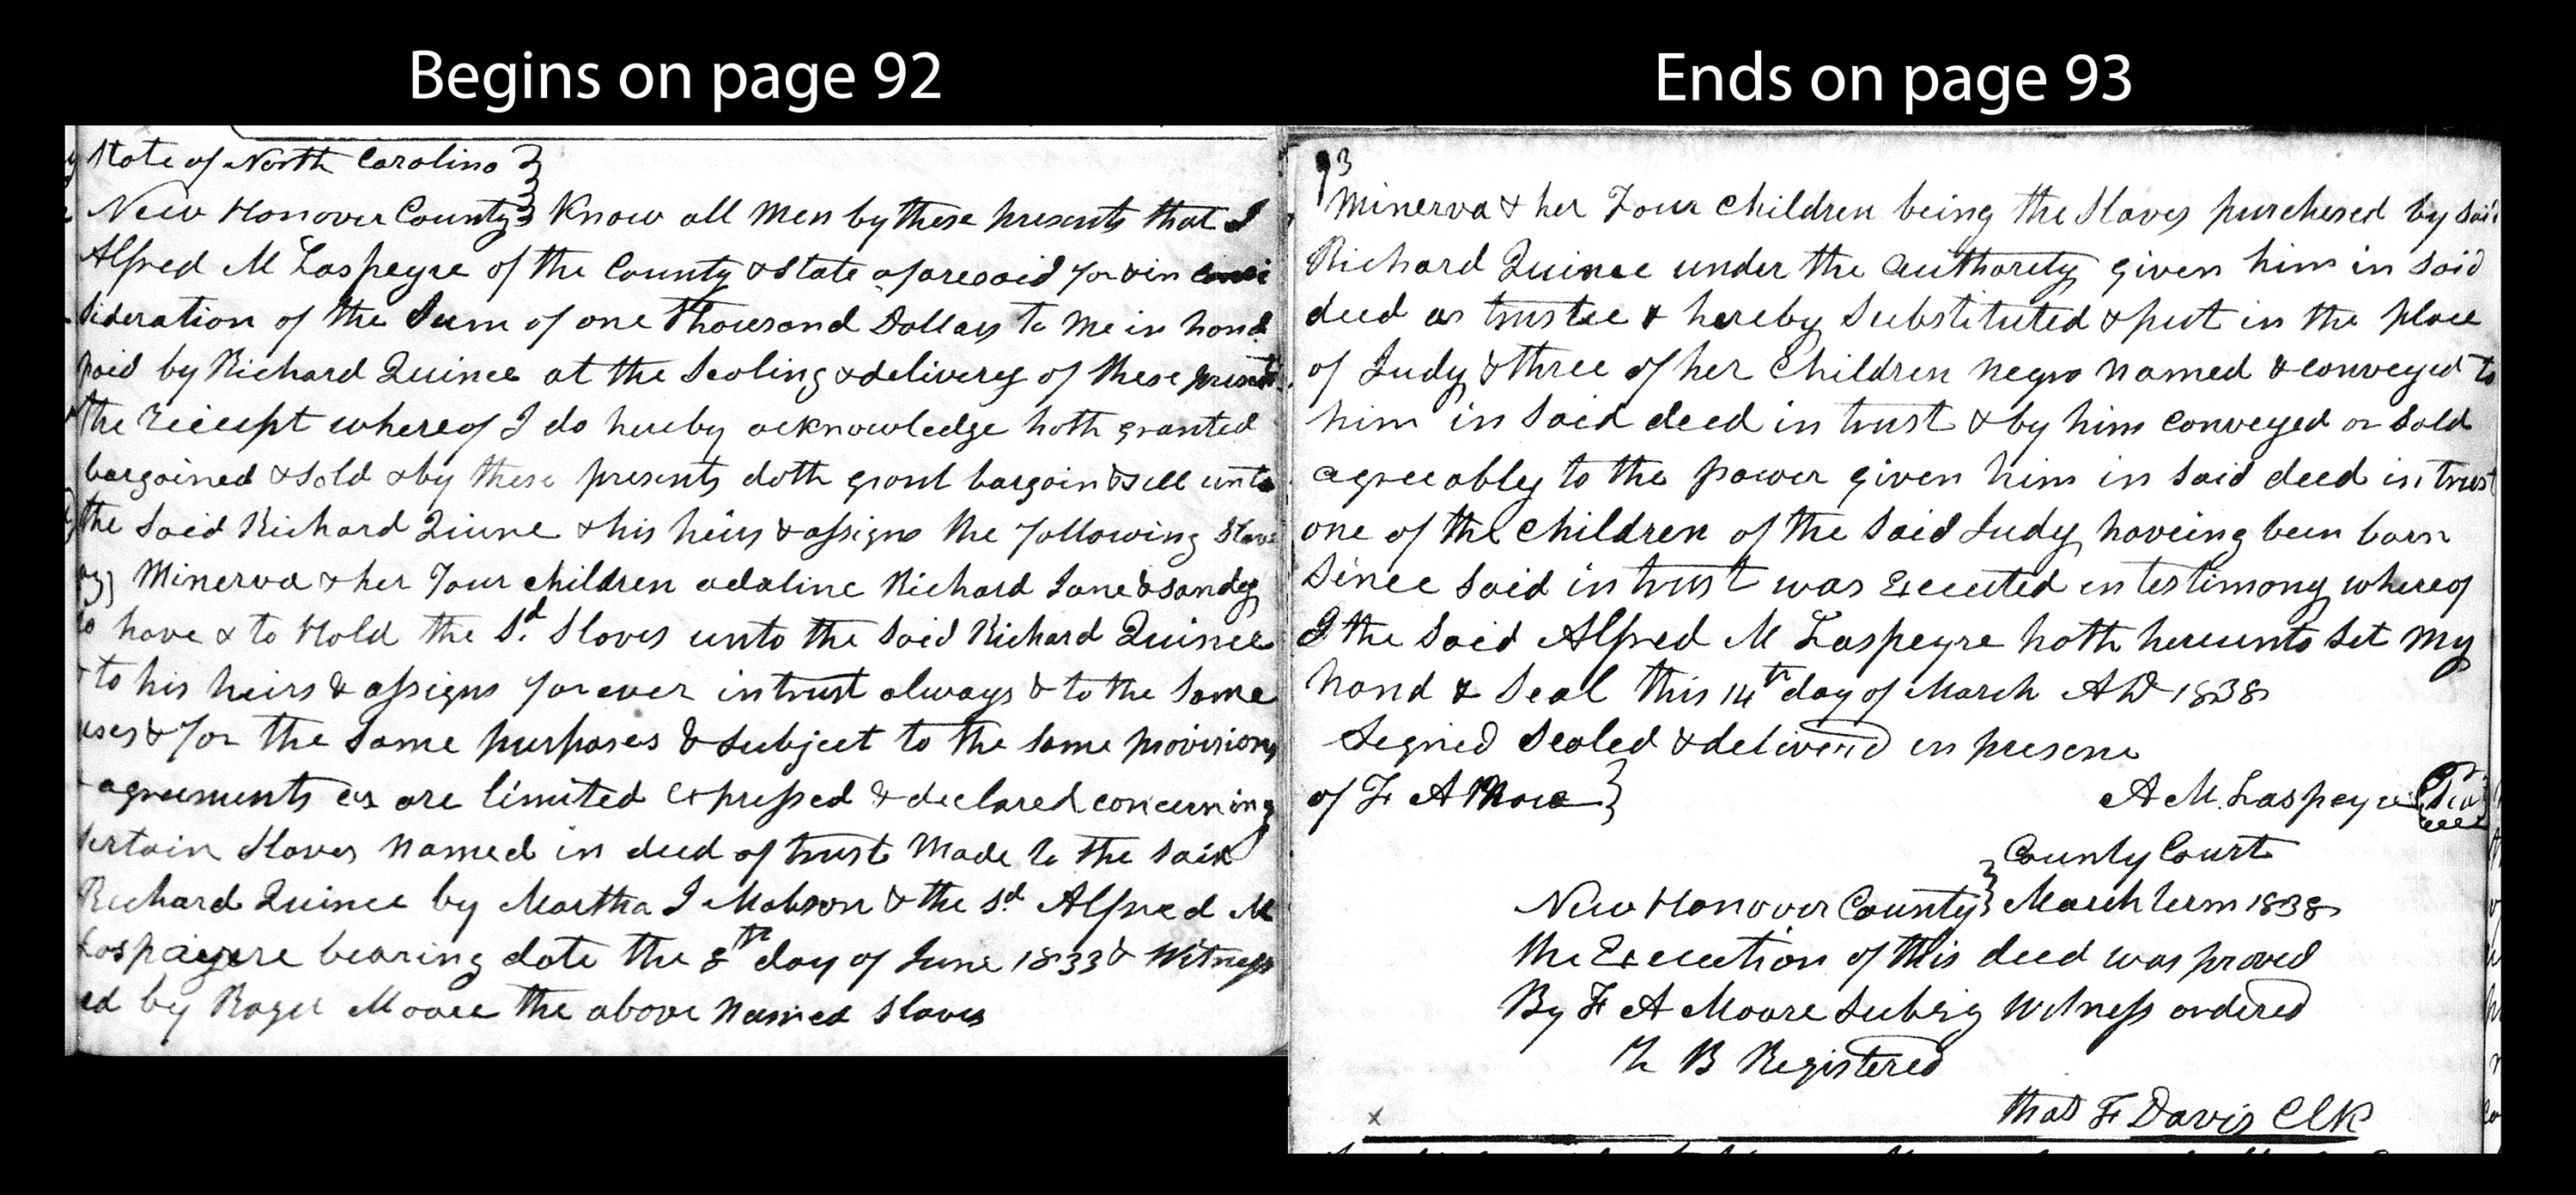 Begins on page 92
State of North Carolina }
New Hanover County } Know all Men by these presents that I
Alfred M Laspeyre of the County & State aforesaid for & in consi
sideration of the Sum of one Thousand Dollars to Me in hand
paid by Richard Quince at the Sealing & delivery of these presents
the receipt whereof I do hereby acknowledge hath granted
bargained & sold & by these presents doth grant bargain & sell unto
the Said Richard Quince & his heirs & assigns the following Slaves
Minerva & her Four children adaline Richard Jane & sandy
to have & to Hold the Sd. Slaves unto the Said Richard Quince
to his heirs & assigns forever in trust always & to the Same
uses & for the Same purposes & Subject to the Same provisions
agreements as are limited expressed & declared concerning
certain Slaves Named in deed of trust Made to the Said
Richard Quince by Martha J Mabson & the Sd Alfred M
Laspeyere bearing date the 8th day of June 1833 & Witness
ed by Roger Moore the above Named Slaves
Ends on page 93
93
Minerva & her Four Children being the Slaves purchesed by Said
Richard Quince under the Authority given him in Said
deed as trustee & hereby Substituted & put in the place
of Judy & three of her Children Negro Named & conveyed to
him in Said deed in trust & by him Conveyed or Sold
agreeably to the power given him in Said deed in trust
one of the Children of the Said Judy haveing been born
Since Said in trust was Executed in testimony whereof
I the Said Alfred M Laspeyre hath hereunto Set My
hand & Seal this 14th day of March AD 1838
Signed Sealed & deliverd in presene
of F A Moore }
A M. Laspeyre Seal
County Court
New Hanover County } March term 1838
the Execution of this deed was proved
By F A Moore Subsig Witness ordered
B Registered
F Davis Clk
x